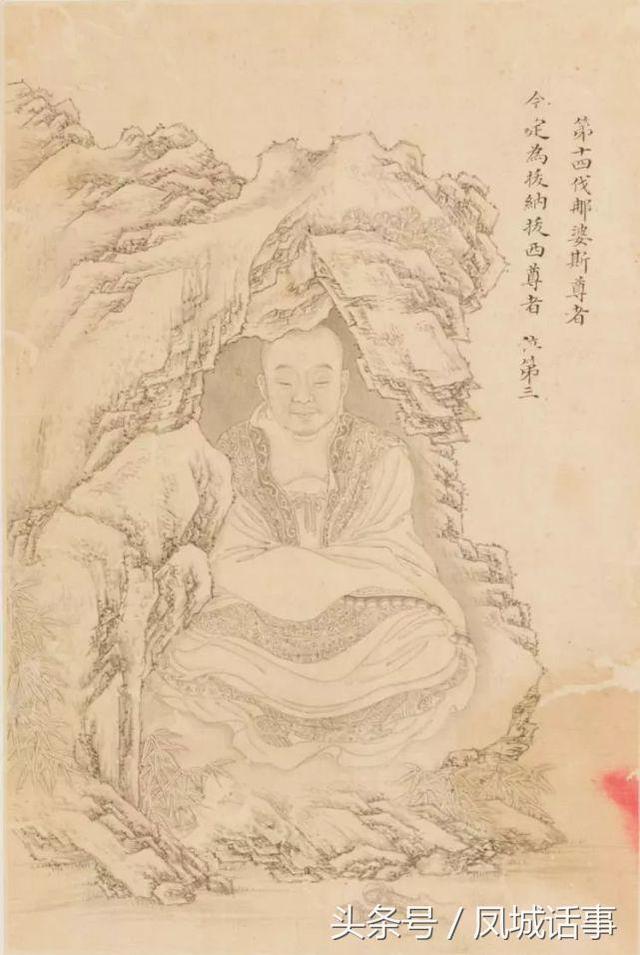 第十四伐那婆斯尊者
今定為拔納拔西尊者 第三
头条号 / 凤城话事